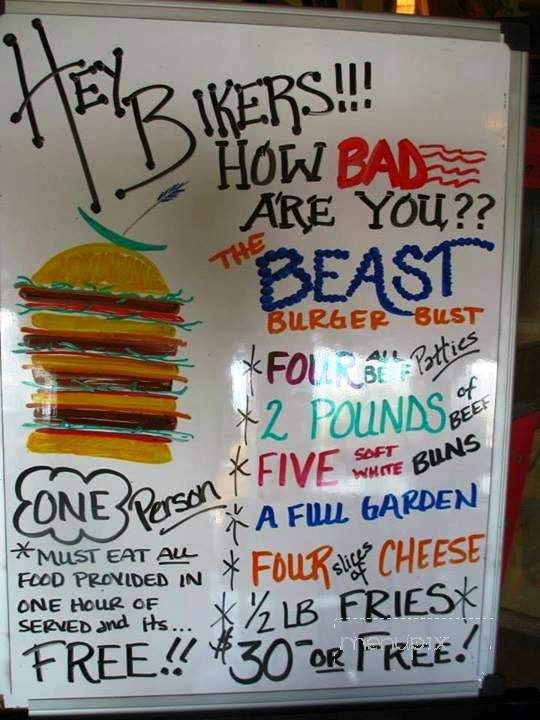 HEY BIKERS!!!
HOW BAD
ARE YOU??
THE
BEAST
BURGER BUST
* FOUR ALL BEEF Patties
* 2 POUNDS of BEEF
* FIVE SOFT WHITE BUNS
* A FULL GARDEN
* FOUR slices of CHEESE
* 1/2 LB FRIES *
$30- OR FREE!
ONE Person
* MUST EAT ALL
FOOD PROVIDED IN
ONE HOUR OF
SERVED and Its...
FREE!!
menupix